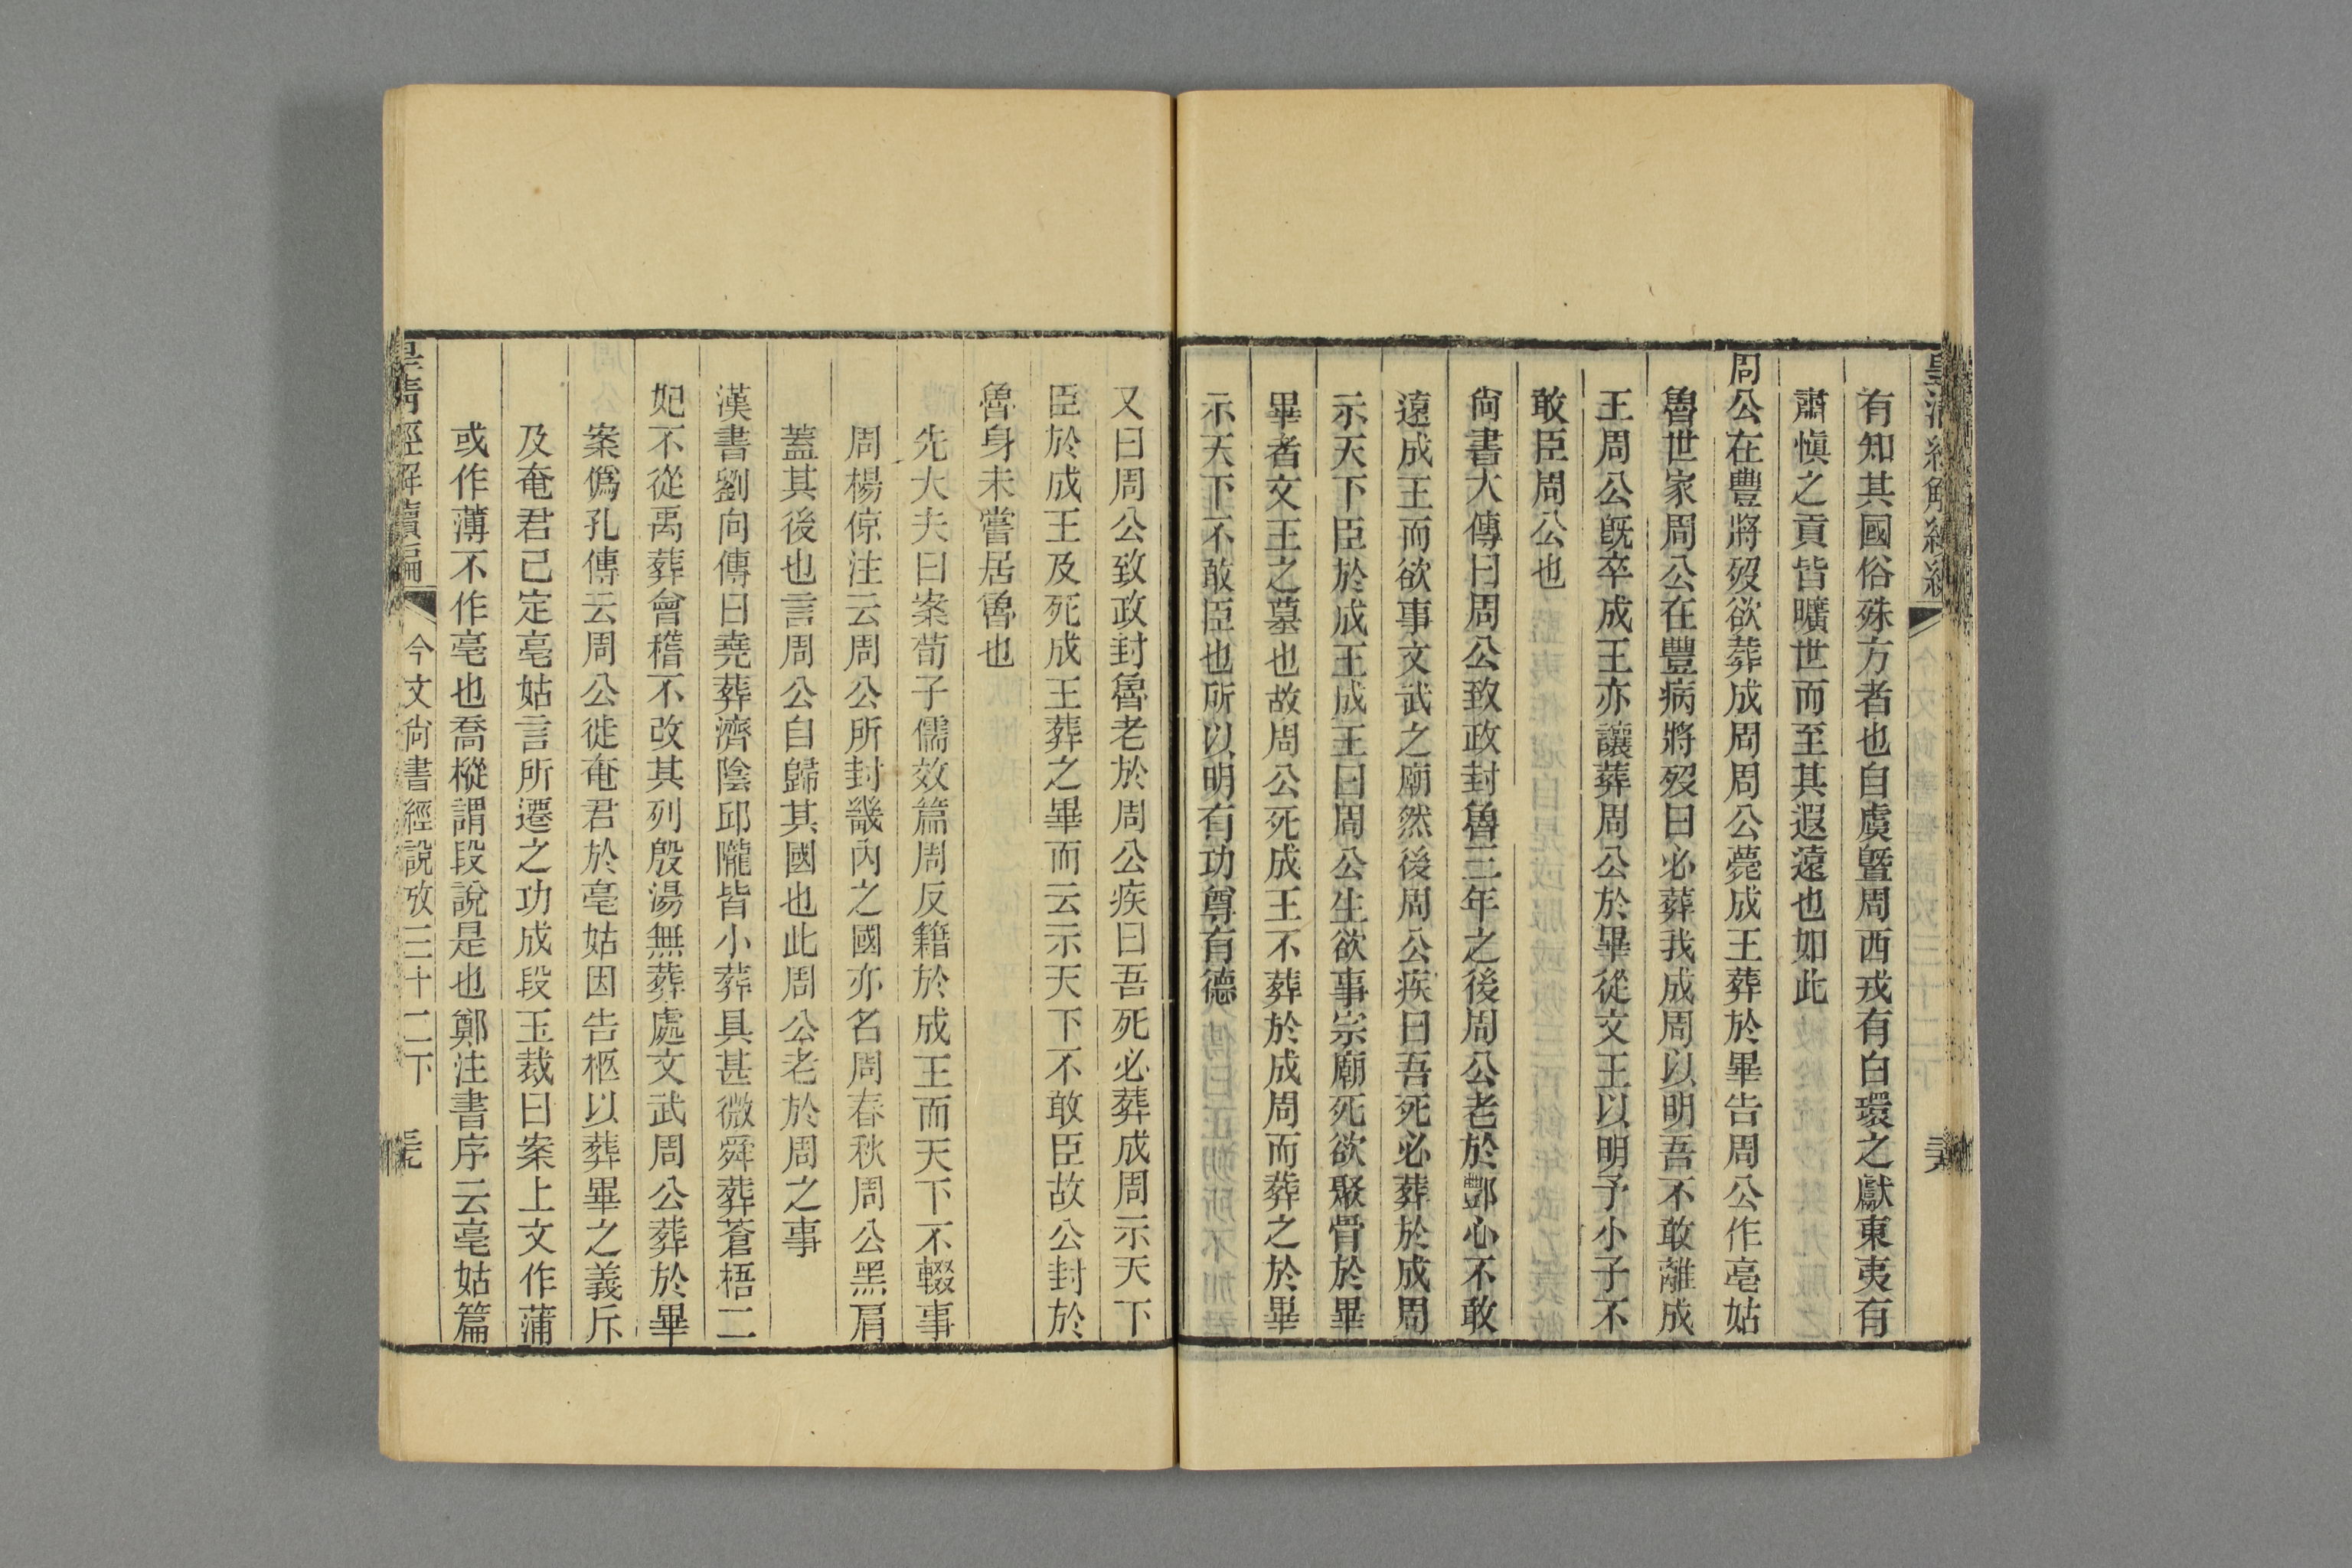 有知其國俗殊方者也自虞曁周西戎有白環之獻東夷有
肅愼之貢皆曠世而至其遐遠也如此
周公在豐將歿欲葬成周周公薨成王葬於畢告周公作亳姑
魯世家周公在豐病將歿曰必葬我成周以明吾不敢離成
王周公旣卒成王亦讓葬周公於畢從文王以明予小子不
敢臣周公也
尙書大傳曰周公致政封魯三年之後周公老於酆心不敢
遠成王而欲事文武之廟然後周公疾曰吾死必葬於成周
示天下臣於成王成王曰周公生欲事宗廟死欲聚骨於畢
畢者文王之墓也故周公死成王不葬於成周而葬之於畢
示天下不敢臣也所以明有功尊有德
又曰周公致政封魯老於周公疾曰吾死必葬成周示天下
臣於成王及死成王葬之畢而云示天下不敢臣故公封於
魯身未嘗居魯也
先大夫曰案荀子儒效篇周反籍於成王而天下不輟事
周楊倞注云周公所封畿內之國亦名周春秋周公黑肩
蓋其後也言周公自歸其國也此周公老於周之事
漢書劉向傳曰堯葬濟陰邱隴皆小葬具甚微舜葬蒼梧二
妃不從禹葬會稽不改其列殷湯無葬處文武周公葬於畢
案僞孔傳云周公徙奄君於亳姑因告柩以葬畢之義斥
及奄君己定亳姑言所遷之功成段玉裁曰案上文作蒲
或作薄不作亳也喬樅謂段說是也鄭注書序云亳姑篇
皇淸經解續編
今文尙書經說攷三十二下